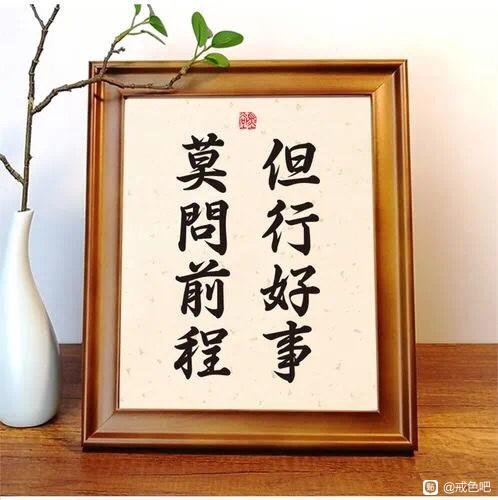 但行好事
莫問前程
@戒色吧